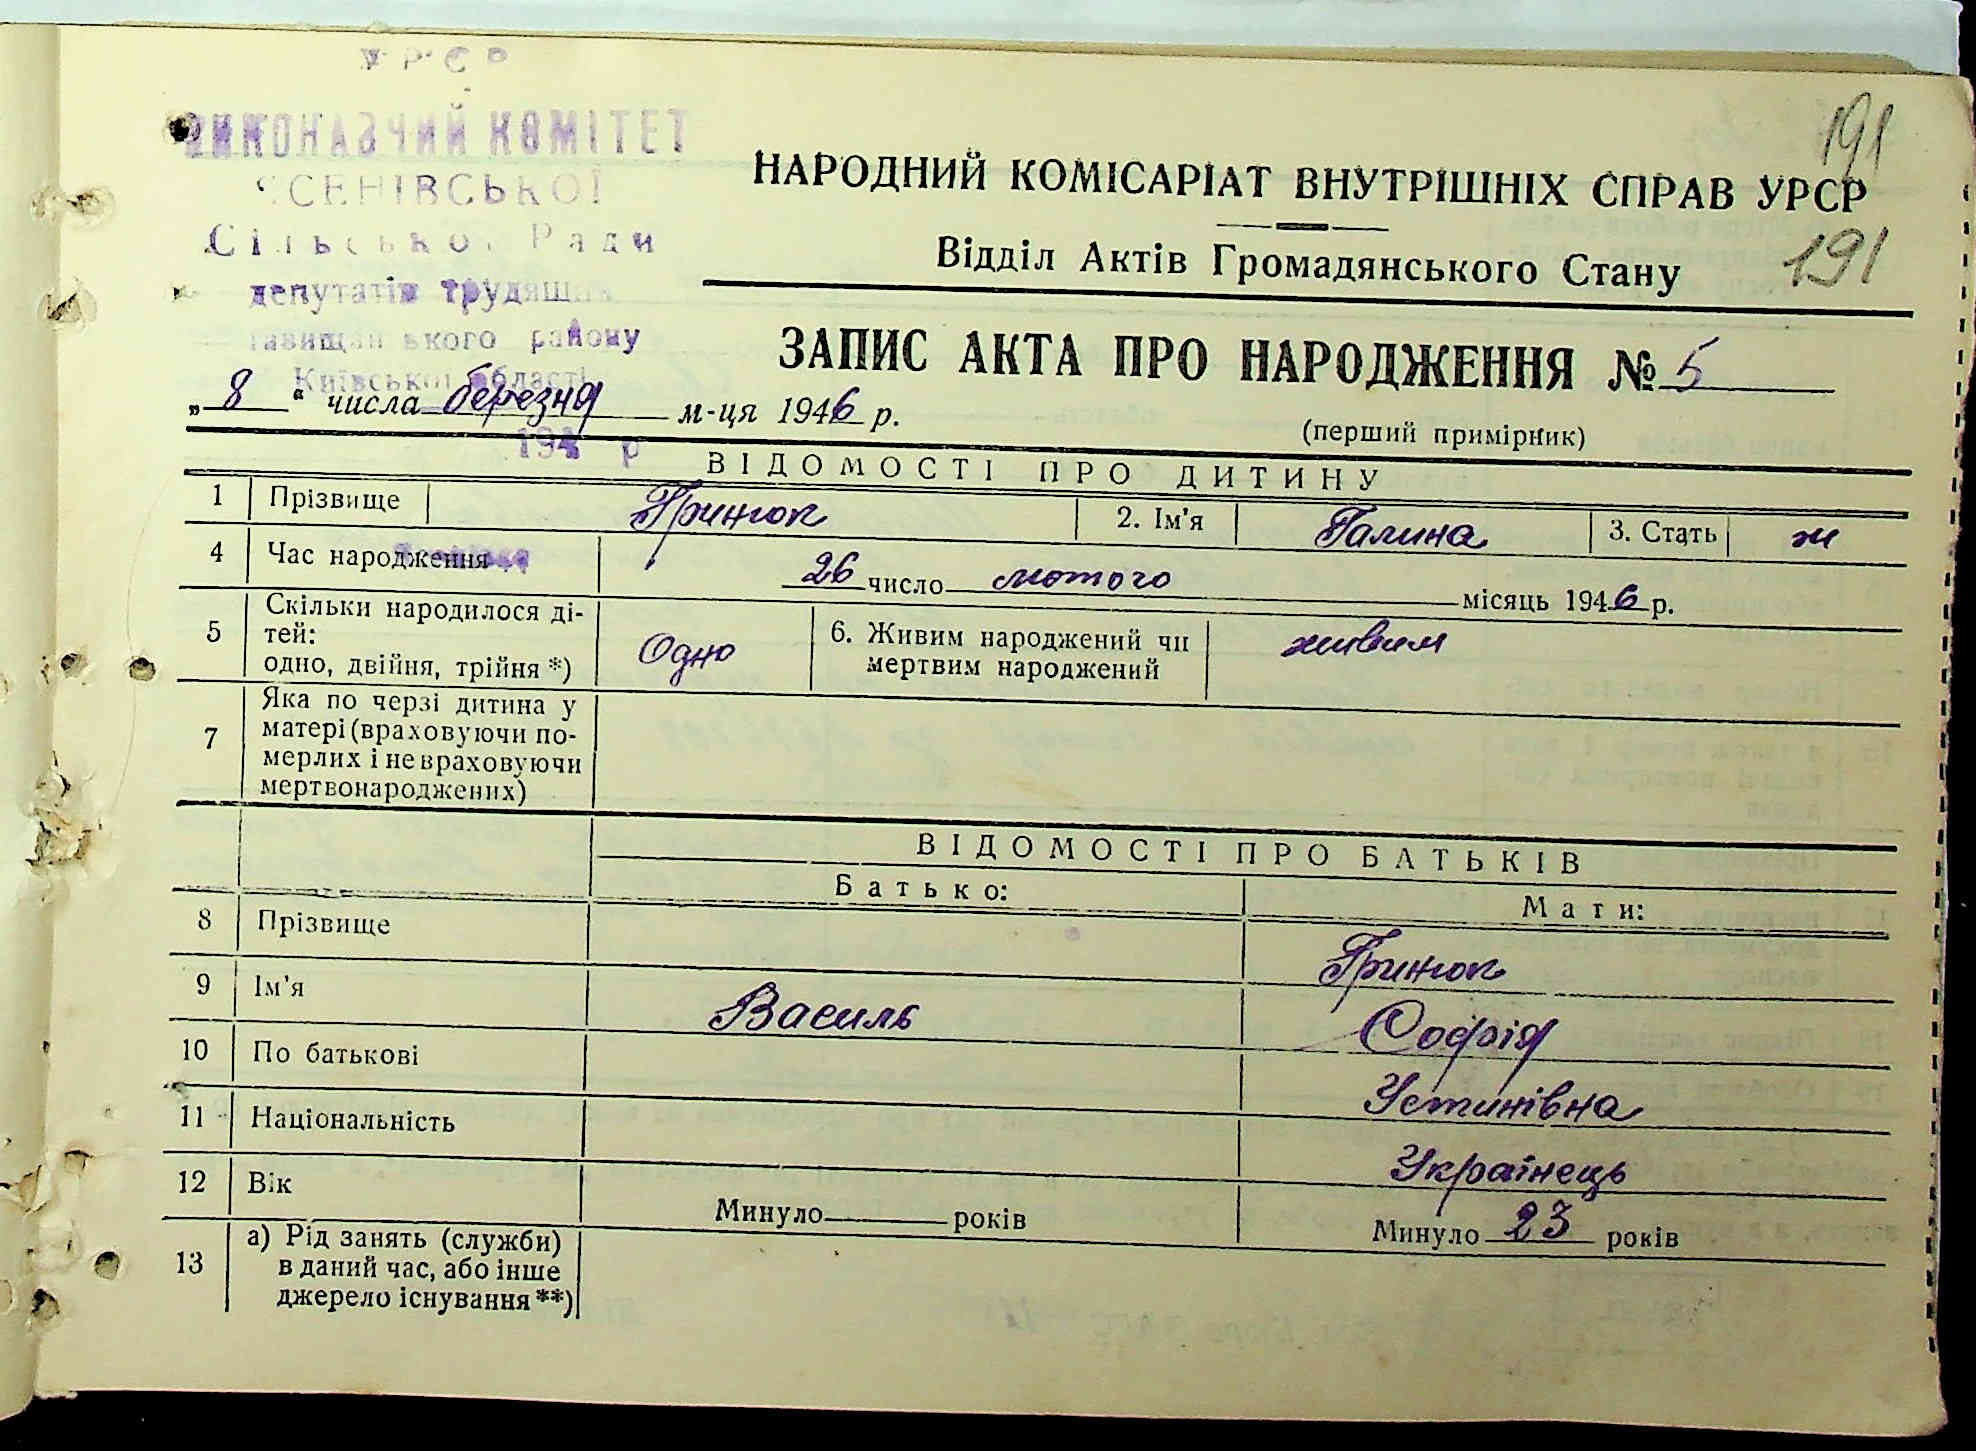 УРСР
191
ВИКОНАВЧИЙ КОМІТЕТ
ЯСЕНІВСЬКОЇ
Сільської Ради
депутатів трудящих
ського району
Київської області
194 р
НАРОДНИЙ КОМІСАРІАТ ВНУТРІШНІХ СПРАВ УРСР
Відділ Актів Громадянського Стану
191
ЗАПИС АКТА ПРО НАРОДЖЕННЯ № 5
„ 8 “ числа березня м-ця 1946 р.
(перший примірник)
ВІДОМОСТІ ПРО ДИТИНУ
1 Прізвище Гринюк 2. Ім'я Галина 3. Стать ж
4 Час народження 26 число лютого місяць 1946 р.
5 Скільки народилося ді-
тей:
одно, двійня, трійня *) Одно 6. Живим народжений чи
мертвим народжений живим
7 Яка по черзі дитина у
матері (враховуючи по-
мерлих і не враховуючи
мертвонароджених)
ВІДОМОСТІ ПРО БАТЬКІВ
Батько: Мати:
8 Прізвище Гринюк
9 Ім'я Василь Софія
10 По батькові Устинівна
11 Національність Українець
12 Вік Минуло років Минуло 23 років
13 а) Рід занять (служби)
в даний час, або інше
джерело існування **)